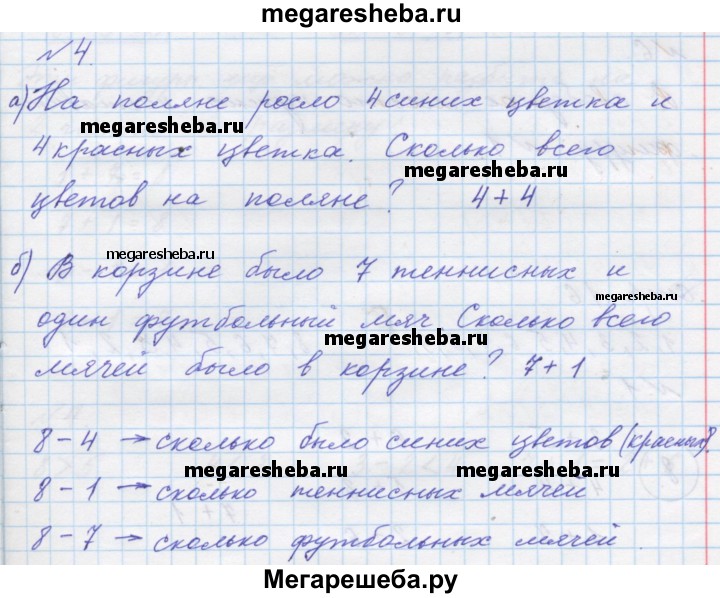 megaresheba.ru
№4.
а) На поляне росло 4 синих цветка и
megaresheba.ru
4 красных цветка. Сколько всего
megaresheba.ru
цветов на поляне? 4+4
megaresheba.ru
б) В корзине было 7 теннисных и
megaresheba.ru
один футбольный мяч Сколько всего
megaresheba.ru
мячей было в корзине? 7+1
8-4 → сколько было синих цветов (красных).
megaresheba.ru megaresheba.ru
8-1 → сколько теннисных мячей
8-7 → сколько футбольных мячей.
Мегарешеба.ру